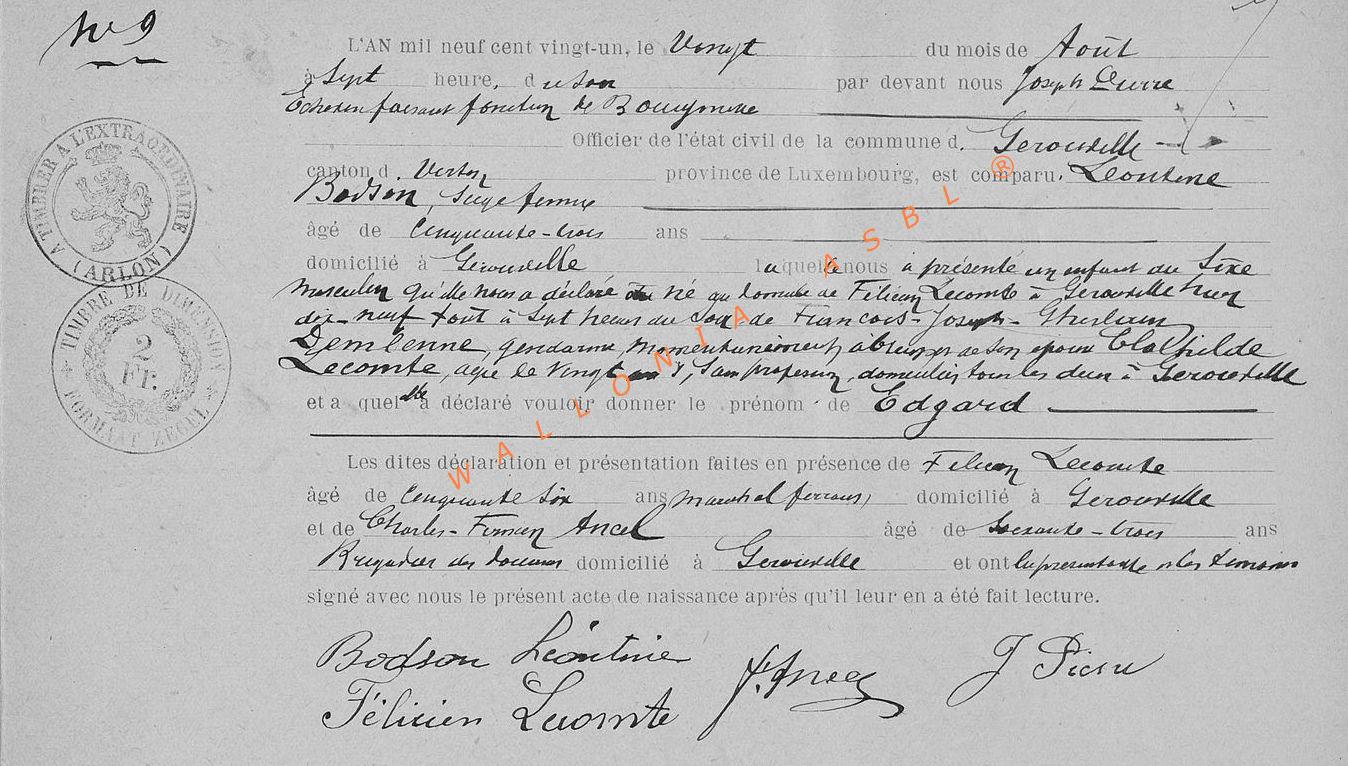 N° 9
L'AN mil neuf cent vingt-un, le Vingt du mois de Août
à Sept heure, du soir par devant nous Joseph Pierre
Echevin faisant fonction de Bourgmestre
Officier de l'état civil de la commune d. Gerouville
canton d. Virton province de Luxembourg, est comparu. Léontine
Bodson, Sage femme
âgé de Cinquante-trois ans
domicilié à Gerouville laquelle nous a présenté un enfant du Sexe
masculin qu'elle nous a déclaré né au domicile de Félicien Lecomte à Gerouville hier
dix-neuf Août à Sept heures du Soir de François-Joseph-Ghislain
Demlenne, gendarme, momentanément absent et de son épouse Clothilde
Lecomte, agée de Vingt ans, Sans profession, domiciliés tous les deux à Gerouville
et a quel elle a déclaré vouloir donner le prénom de Edgard
Les dites déclaration et présentation faites en présence de Félicien Lecomte
âgé de Cinquante Six ans marechal ferrant, domicilié à Gerouville
et de Charles-Firmin Ancel âgé de Soixante-trois ans
Brigadier des douanes domicilié à Gerouville et ont la présentante et les témoins
signé avec nous le présent acte de naissance après qu'il leur en a été fait lecture.
Bodson Léontine
Félicien Lecomte
F. Ancel
J Pierre
A TIMBRER A L'EXTRAORDINAIRE
(ARLON)
TIMBRE DE DIMENSION
2
Fr.
FORMAAT ZEGEL
WALLONIA ASBL ®